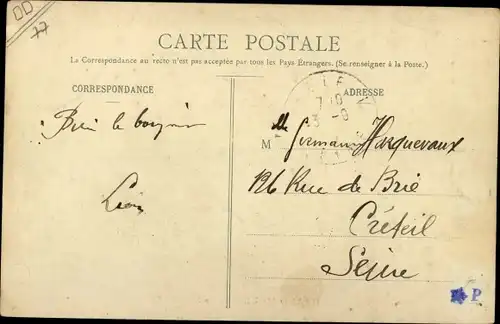 77
CARTE POSTALE
La Correspondance au recto n'est pas acceptée par tous les Pays Étrangers. (Se renseigner à la Poste.)
CORRESPONDANCE
ADRESSE
Bien le bonjour
Léon
M lle Germaine Harquevaux
126 Rue de Brie
Créteil
Seine
P